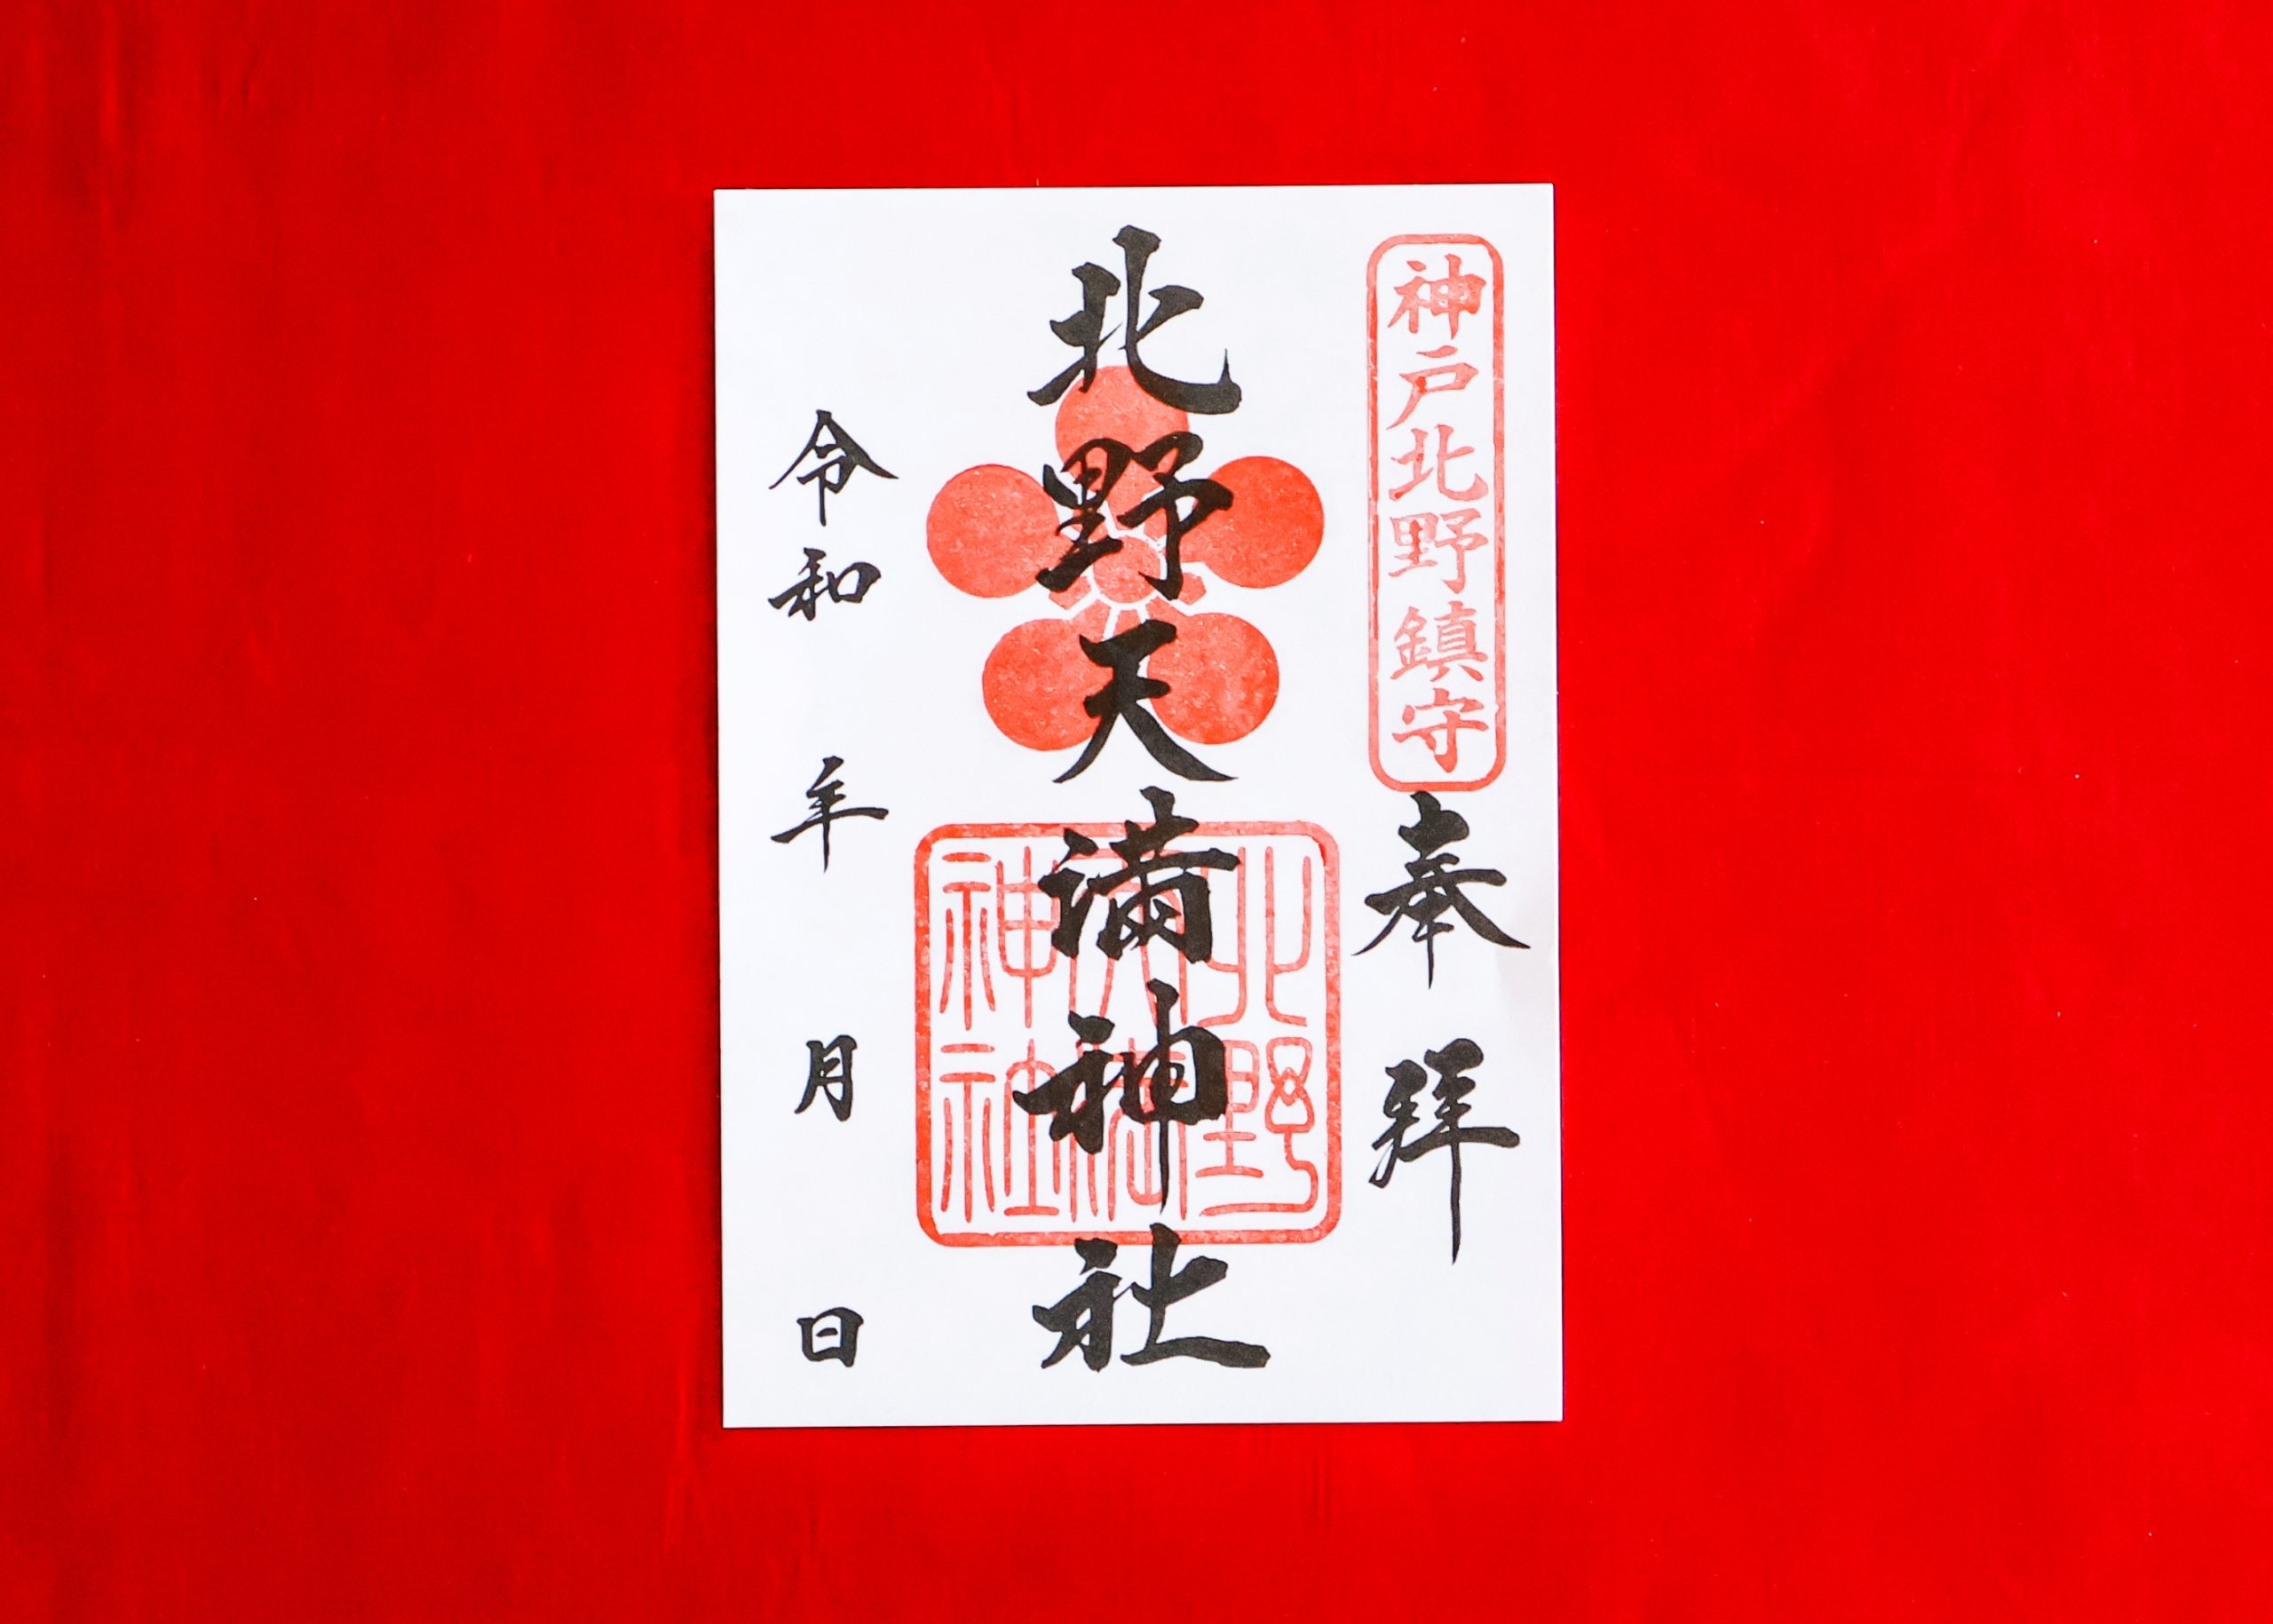 神戸北野鎮守
奉拝
北野天満神社
北野天満神社
令和 年 月 日